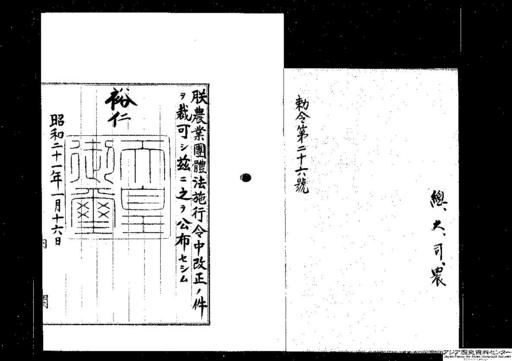 總、大、司、農
勅令第二十六號
朕農業團體法施行令中改正ノ件
ヲ裁可シ茲ニ之ヲ公布セシム
裕仁
天皇
御璽
昭和二十一年一月十六日
内閣
アジア歴史資料センター